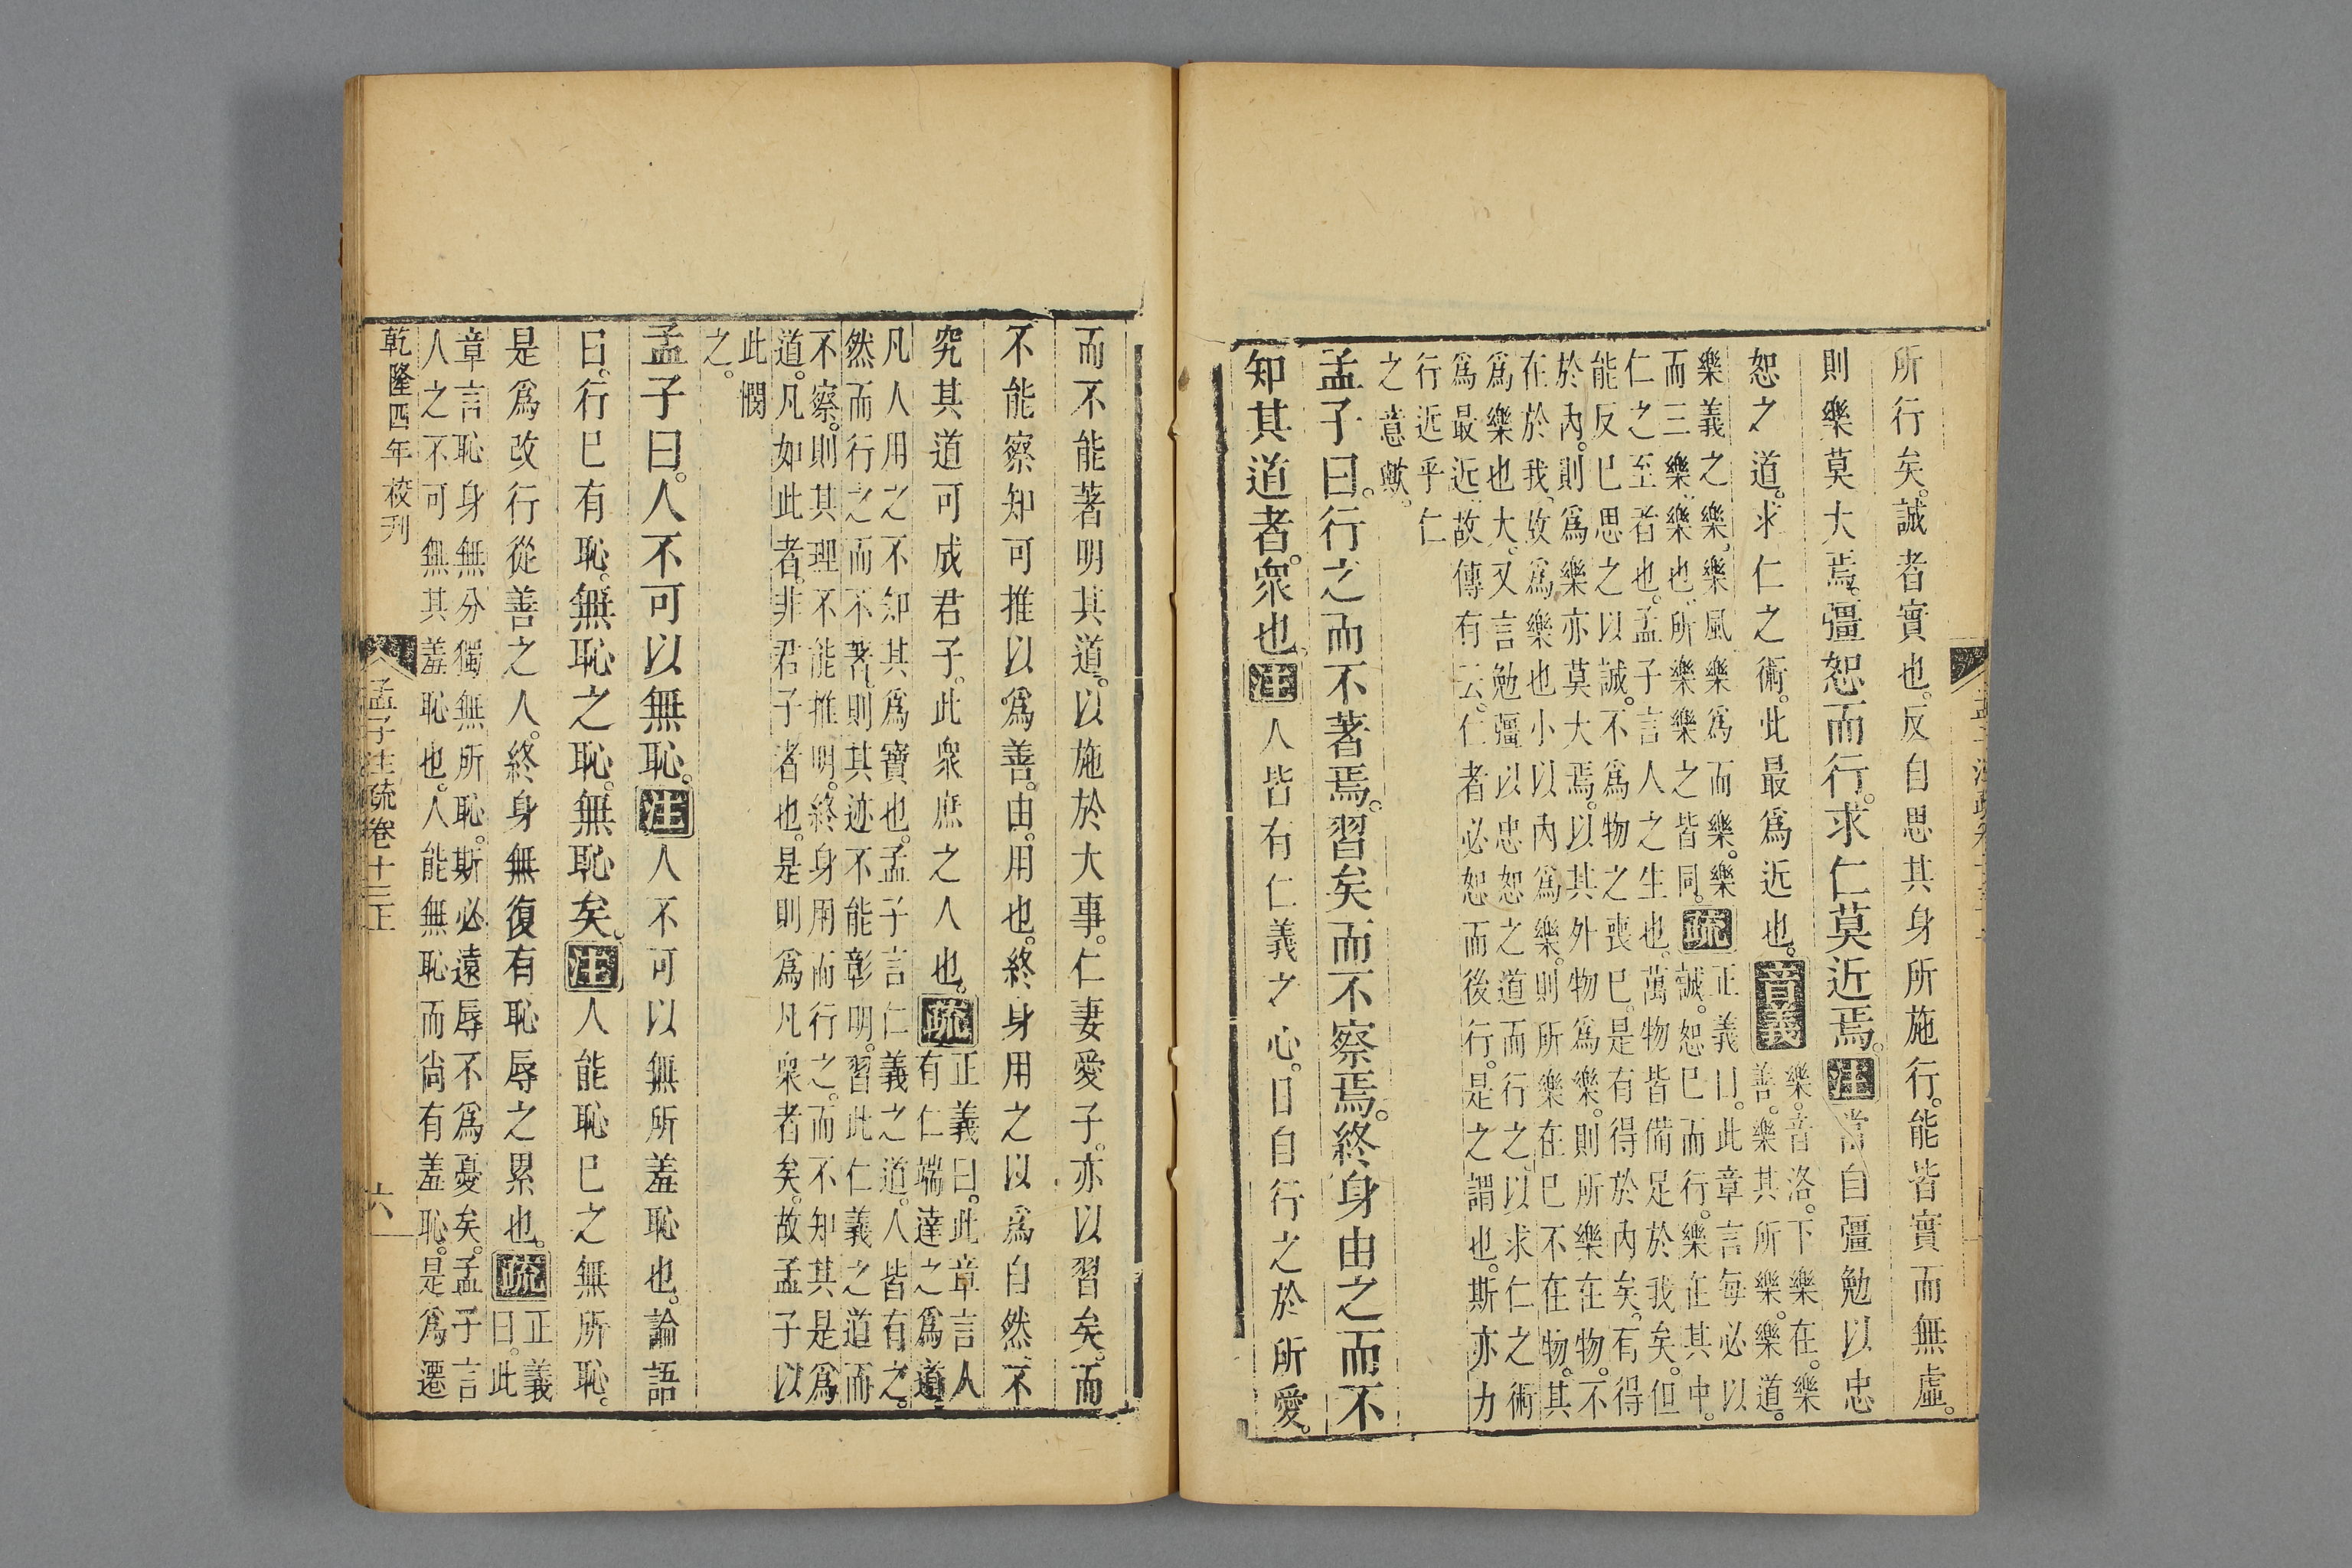 所行矣。誠者實也。反自思其身所施行。能皆實而無虛。
則樂莫大焉。彊恕而行。求仁莫近焉。注當自彊勉以忠
恕之道。求仁之術。此最爲近也。音義樂。音洛。下樂在。樂
善。樂其所樂。樂道。
樂義之樂。樂風樂爲而樂。樂
而三樂。樂也。所樂樂之皆同。疏正義曰。此章言每必以
誠。恕已而行。樂在其中。
仁之至者也。孟子言人之生也。萬物皆備足於我矣。但
能反已思之以誠。不爲物之喪已。是有得於內矣。有得
於內。則爲樂亦莫大焉。以其外物爲樂。則所樂在物。不
在於我。故爲樂也小以內爲樂。則所樂在已不在物。其
爲樂也大。又言勉彊以忠恕之道而行之。以求仁之術
爲最近。故傳有云。仁者必恕而後行。是之謂也。斯亦力
行近乎仁
之意歟。
孟子曰。行之而不著焉。習矣而不察焉。終身由之而不
知其道者。衆也。注人皆有仁義之心。日自行之於所愛。
而不能著明其道。以施於大事。仁妻愛子。亦以習矣。而
不能察知可推以爲善。由。用也。終身用之以爲自然不
究其道可成君子。此衆庶之人也。疏正義曰。此章言人
有仁端達之爲道。
凡人用之不知其爲寶也。孟子言仁義之道。人皆有之。
然而行之而不著。則其迹不能彰明。習此仁義之道而
不察。則其理不能推明。終身用而行之。而不知其是爲
道。凡如此者。非君子者也。是則爲凡衆者矣。故孟子以
此憫
之。
孟子曰。人不可以無恥。注人不可以無所羞恥也。論語
曰。行已有恥。無恥之恥。無恥矣。注人能恥已之無所恥。
是爲改行從善之人。終身無復有恥辱之累也。疏正義
曰。此
章言恥身無分獨無所恥。斯必遠辱不爲憂矣。孟子言
人之不可無其羞恥也。人能無恥而尚有羞恥。是爲遷
乾隆四年校刊
孟子注疏卷十三上
六